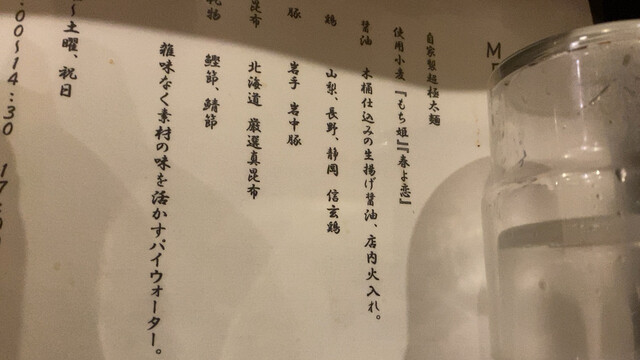 自家製超極太麺
使用小麦 『もち姫』『春よ恋』
醤油 木桶仕込みの生揚げ醤油、店内火入れ。
鶏 山梨、長野、静岡 信玄鶏
豚 岩手 岩中豚
昆布 北海道 厳選真昆布
乾物 鰹節、鯖節
雑味なく素材の味を活かすパイウォーター。
～土曜、祝日
:00～14:30 17:0